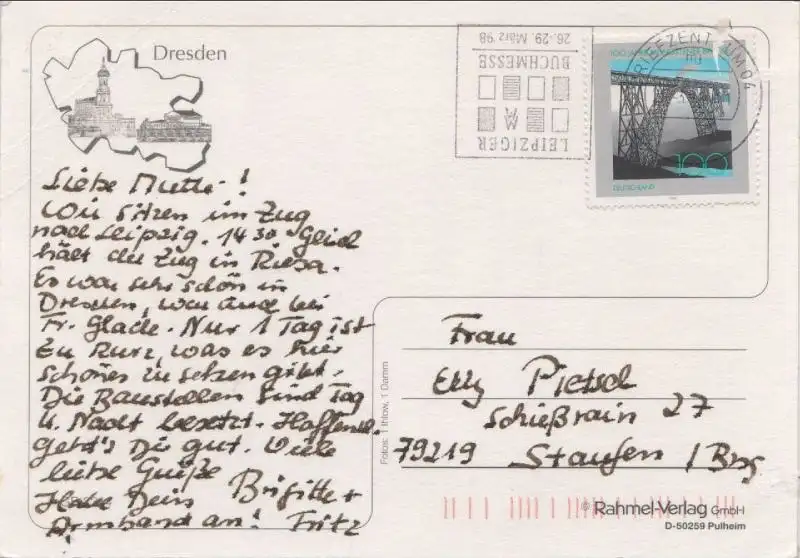 Dresden
Liebe Mutter!
Wir sitzen im Zug
nach Leipzig. 14 30 Gleich
hält der Zug in Riesa.
Es war sehr schön in
Dresden, war auch bei
Fr. Glade. Nur 1 Tag ist
zu kurz, was es hier
schönes zu sehen gibt.
Die Baustellen sind Tag
u. Nacht besetzt. Hoffentl.
geht's Dir gut. Viele
liebe Grüße
Habe Dein Brigitte +
Armband an! Fritz
LEIPZIGER
BUCHMESSE
26.-29. März 98
BRIEFZENTRUM 04
100
DEUTSCHLAND
Frau
Elly Pietsch
Schießrain 27
79219 Staufen / Brsg
Fotos: 1 Ihlow, 1 Damm
© Rahmel-Verlag GmbH
D-50259 Pulheim